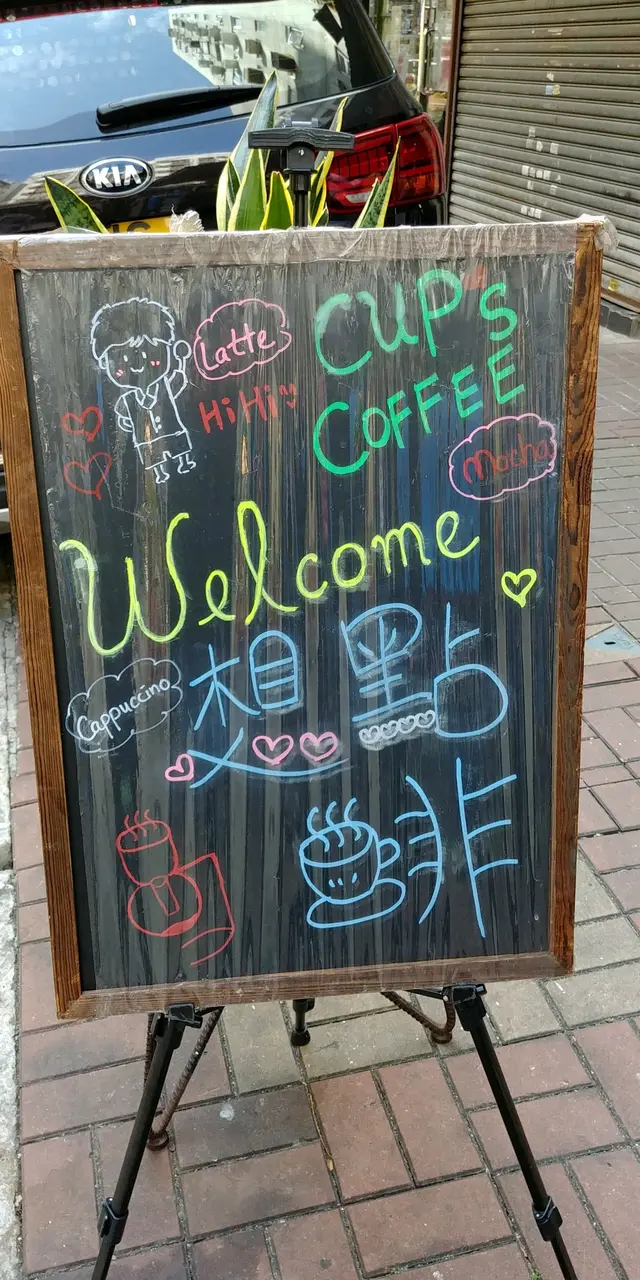 KIA
Latte
CUPs
HiHi
COFFEE
Mocha
Welcome
Cappuccino
想點
啡